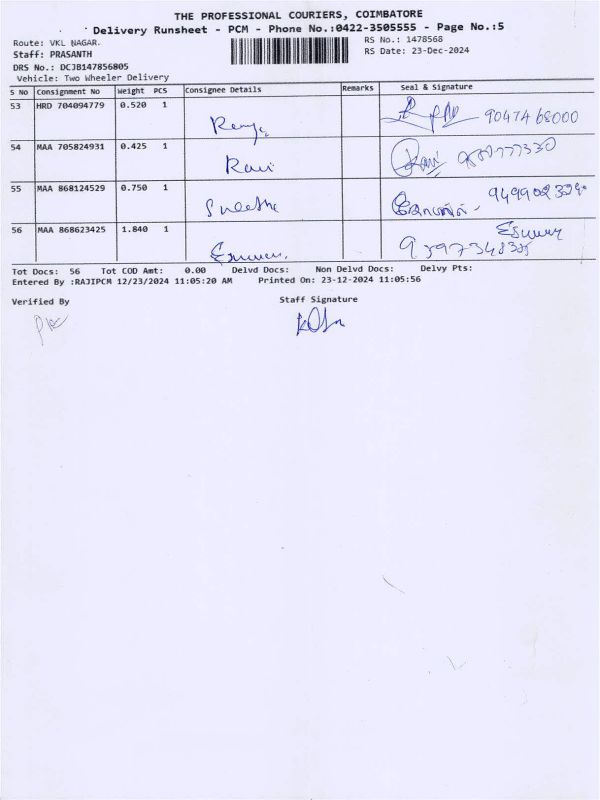 THE PROFESSIONAL COURIERS, COIMBATORE
Delivery Runsheet - PCM - Phone No.:0422-3505555 - Page No.:5
Route: VKL NAGAR.
RS No.: 1478568
Staff: PRASANTH
RS Date: 23-Dec-2024
DRS No.: DCJB147856805
Vehicle: Two Wheeler Delivery
S No Consignment No Weight PCS Consignee Details Remarks Seal & Signature
53 HRD 704094779 0.520 1 90474 68000
54 MAA 705824931 0.425 1 Ravi Ravi
55 MAA 868124529 0.750 1
56 MAA 868623425 1.840 1
Tot Docs: 56 Tot COD Amt: 0.00 Delvd Docs: Non Delvd Docs: Delvy Pts:
Entered By :RAJIPCM 12/23/2024 11:05:20 AM Printed On: 23-12-2024 11:05:56
Verified By
Staff Signature